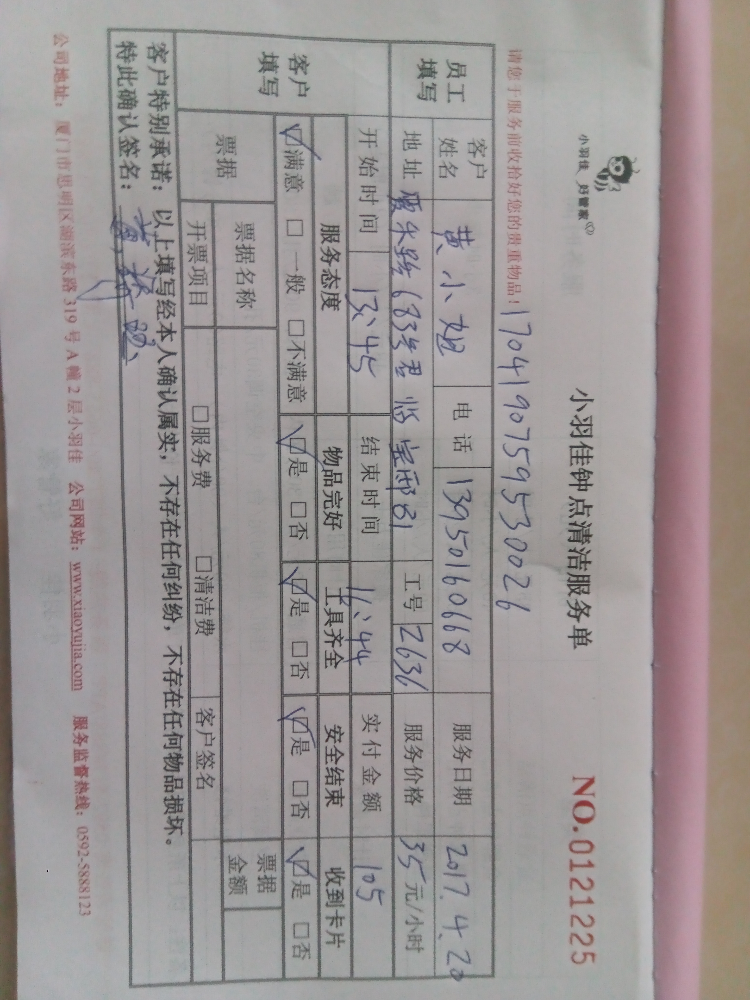 小羽佳 好管家
小羽佳钟点清洁服务单
NO.0121225
请您于服务前收拾好您的贵重物品！
17041907595530026
员工填写 客户姓名 黄小姐 电话 13950160668 服务日期 2017.4.20
地址 厦禾路683号 工号 2636 服务价格 35元/小时
开始时间 13:45 结束时间 16:44 实付金额 105
客户填写 服务态度 物品完好 工具齐全 安全结束 收到卡片
☑满意 □一般 □不满意 ☑是 □否 ☑是 □否 ☑是 □否 ☑是 □否
票据 票据名称 票据金额
开票项目 □服务费 □清洁费 客户签名
客户特别承诺：以上填写经本人确认属实，不存在任何纠纷，不存在任何物品损坏。
特此确认签名：
公司地址：厦门市思明区湖滨东路 319 号 A 幢 2 层小羽佳 公司网站：www.xiaoyujia.com 服务监督热线：0592-5888123